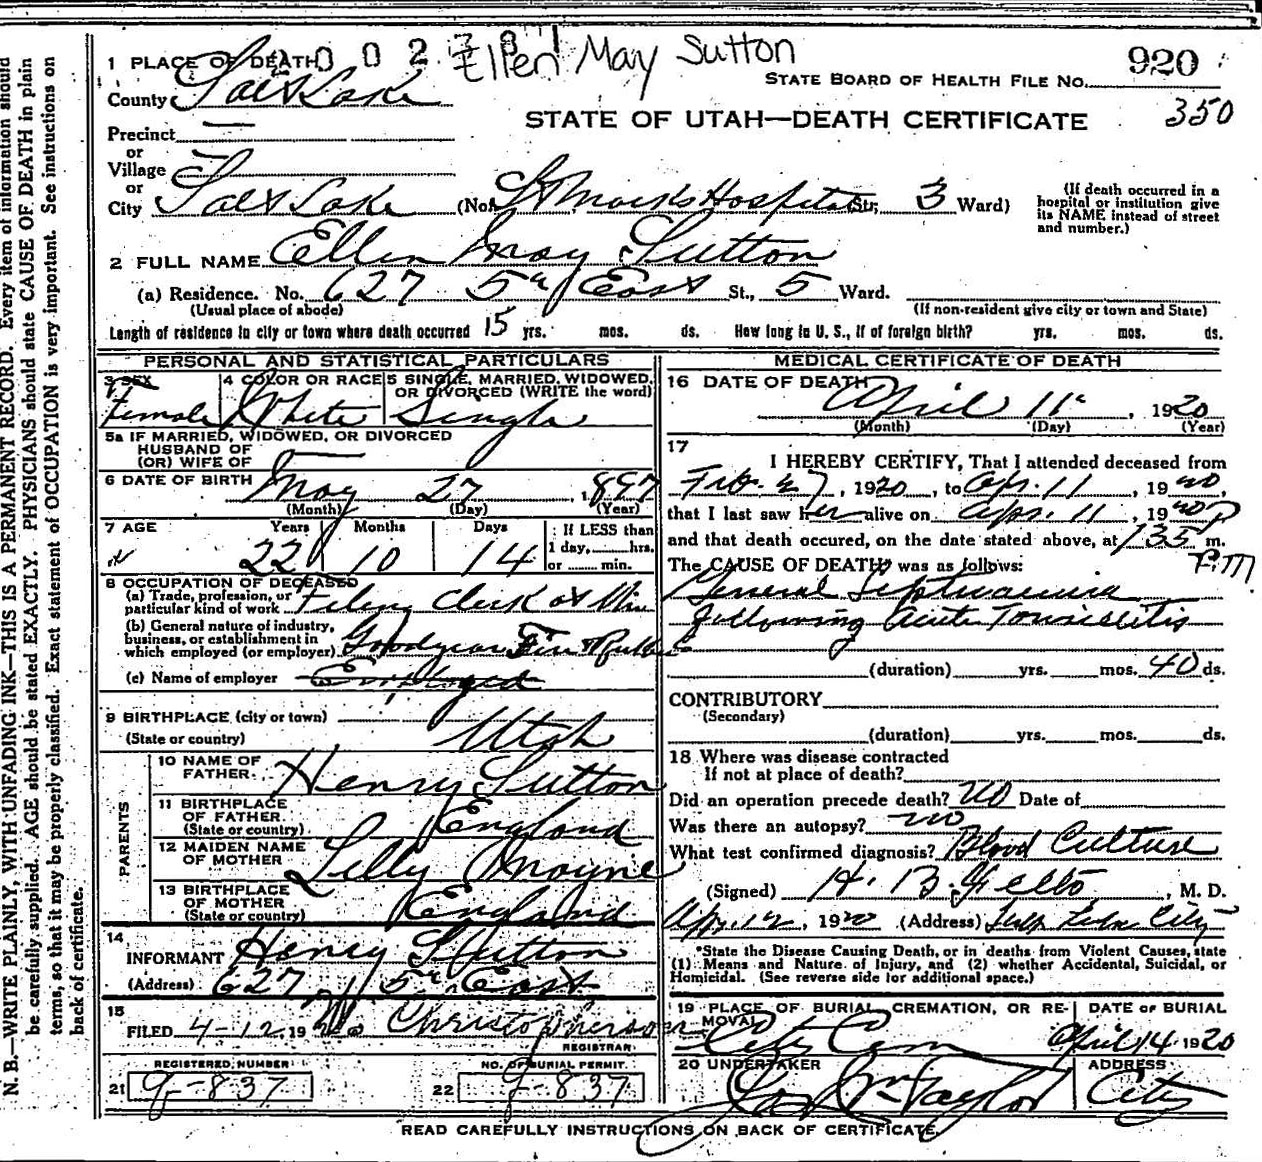 Ellen May Sutton
920
1 PLACE OF DEATH
STATE BOARD OF HEALTH FILE No.
County Salt Lake
350
STATE OF UTAH—DEATH CERTIFICATE
Precinct —
or
Village —
or
City Salt Lake (No. St Marks Hospital St; 3 Ward)
(If death occurred in a hospital or institution give its NAME instead of street and number.)
2 FULL NAME Ellen May Sutton
(a) Residence. No. 627 5th East St., 5 Ward.
(Usual place of abode) (If non-resident give city or town and State)
Length of residence in city or town where death occurred 15 yrs. mos. ds. How long in U. S., if of foreign birth? yrs. mos. ds.
PERSONAL AND STATISTICAL PARTICULARS
3 SEX Female
4 COLOR OR RACE White
5 SINGLE, MARRIED, WIDOWED, OR DIVORCED (WRITE the word) Single
5a IF MARRIED, WIDOWED, OR DIVORCED
HUSBAND OF
(OR) WIFE OF —
6 DATE OF BIRTH May 27 1897
(Month) (Day) (Year)
7 AGE Years Months Days If LESS than
22 10 14 1 day, hrs.
or min.
8 OCCUPATION OF DECEASED
(a) Trade, profession, or
particular kind of work Filing Clerk at
(b) General nature of industry,
business, or establishment in
which employed (or employer) Goodyear Tire & Rubber
(c) Name of employer Employed
9 BIRTHPLACE (city or town)
(State or country) Utah
PARENTS
10 NAME OF FATHER. Henry Sutton
11 BIRTHPLACE OF FATHER. (State or country) England
12 MAIDEN NAME OF MOTHER Lilly Mayne
13 BIRTHPLACE OF MOTHER (State or country) England
14
INFORMANT Henry Sutton
(Address) 627 5th East
15
FILED 4-12, 19 Christopherson
REGISTRAR
REGISTERED NUMBER NO. OF BURIAL PERMIT
21 g-837 22 g-837
MEDICAL CERTIFICATE OF DEATH
16 DATE OF DEATH April 11", 1920
(Month) (Day) (Year)
17
I HEREBY CERTIFY, That I attended deceased from
Feb. 27, 1920, to Apr. 11, 1920,
that I last saw her alive on Apr. 11, 1920
and that death occured, on the date stated above, at 1 35 P. m.
P.M
The CAUSE OF DEATH was as follows:
General Septicaemia
following Acute Tonsillitis
(duration) yrs. mos. 40 ds.
CONTRIBUTORY
(Secondary)
(duration) yrs. mos. ds.
18 Where was disease contracted
If not at place of death?
Did an operation precede death? no Date of
Was there an autopsy? no
What test confirmed diagnosis? Blood Culture
(Signed) H. B. , M. D.
Apr. 12, 1920 (Address) Salt Lake City
*State the Disease Causing Death, or in deaths from Violent Causes, state
(1) Means and Nature of Injury, and (2) whether Accidental, Suicidal, or
Homicidal. (See reverse side for additional space.)
19 PLACE OF BURIAL, CREMATION, OR REMOVAL DATE OF BURIAL
City Cem April 14 1920
20 UNDERTAKER ADDRESS
Taylor City
READ CAREFULLY INSTRUCTIONS ON BACK OF CERTIFICATE.
N. B.—WRITE PLAINLY, WITH UNFADING INK—THIS IS A PERMANENT RECORD. Every item of information should
be carefully supplied. AGE should be stated EXACTLY. PHYSICIANS should state CAUSE OF DEATH in plain
terms, so that it may be properly classified. Exact statement of OCCUPATION is very important. See instructions on
back of certificate.